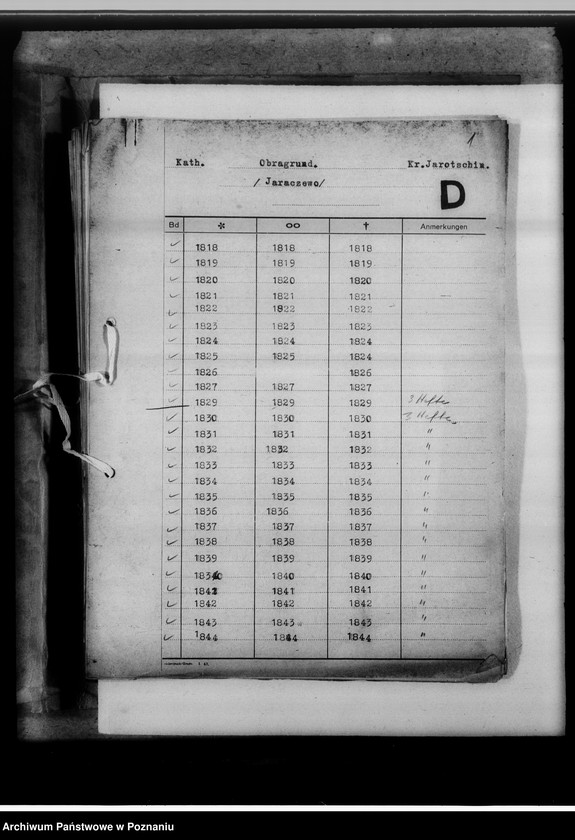 1
Kath. Obragrund. Kr.Jarotschin.
/ Jaraczewo/
D
Bd * ∞ † Anmerkungen
✓ 1818 1818 1818
✓ 1819 1819 1819
✓ 1820 1820 1820
✓ 1821 1821 1821
✓ 1822 1822 1822
✓ 1823 1823 1823
✓ 1824 1824 1824
✓ 1825 1825 1824
✓ 1826 1826
✓ 1827 1827 1827
✓ 1829 1829 1829 3 Hefte
✓ 1830 1830 1830 3 Hefte
✓ 1831 1831 1831 "
✓ 1832 1832 1832 "
✓ 1833 1833 1833 "
✓ 1834 1834 1834 "
✓ 1835 1835 1835 "
✓ 1836 1836 1836 "
✓ 1837 1837 1837 "
✓ 1838 1838 1838 "
✓ 1839 1839 1839 "
✓ 1840 1840 1840 "
✓ 1841 1841 1841 "
✓ 1842 1842 1842 "
✓ 1843 1843 1843 "
✓ 1844 1844 1844 "
Archiwum Państwowe w Poznaniu